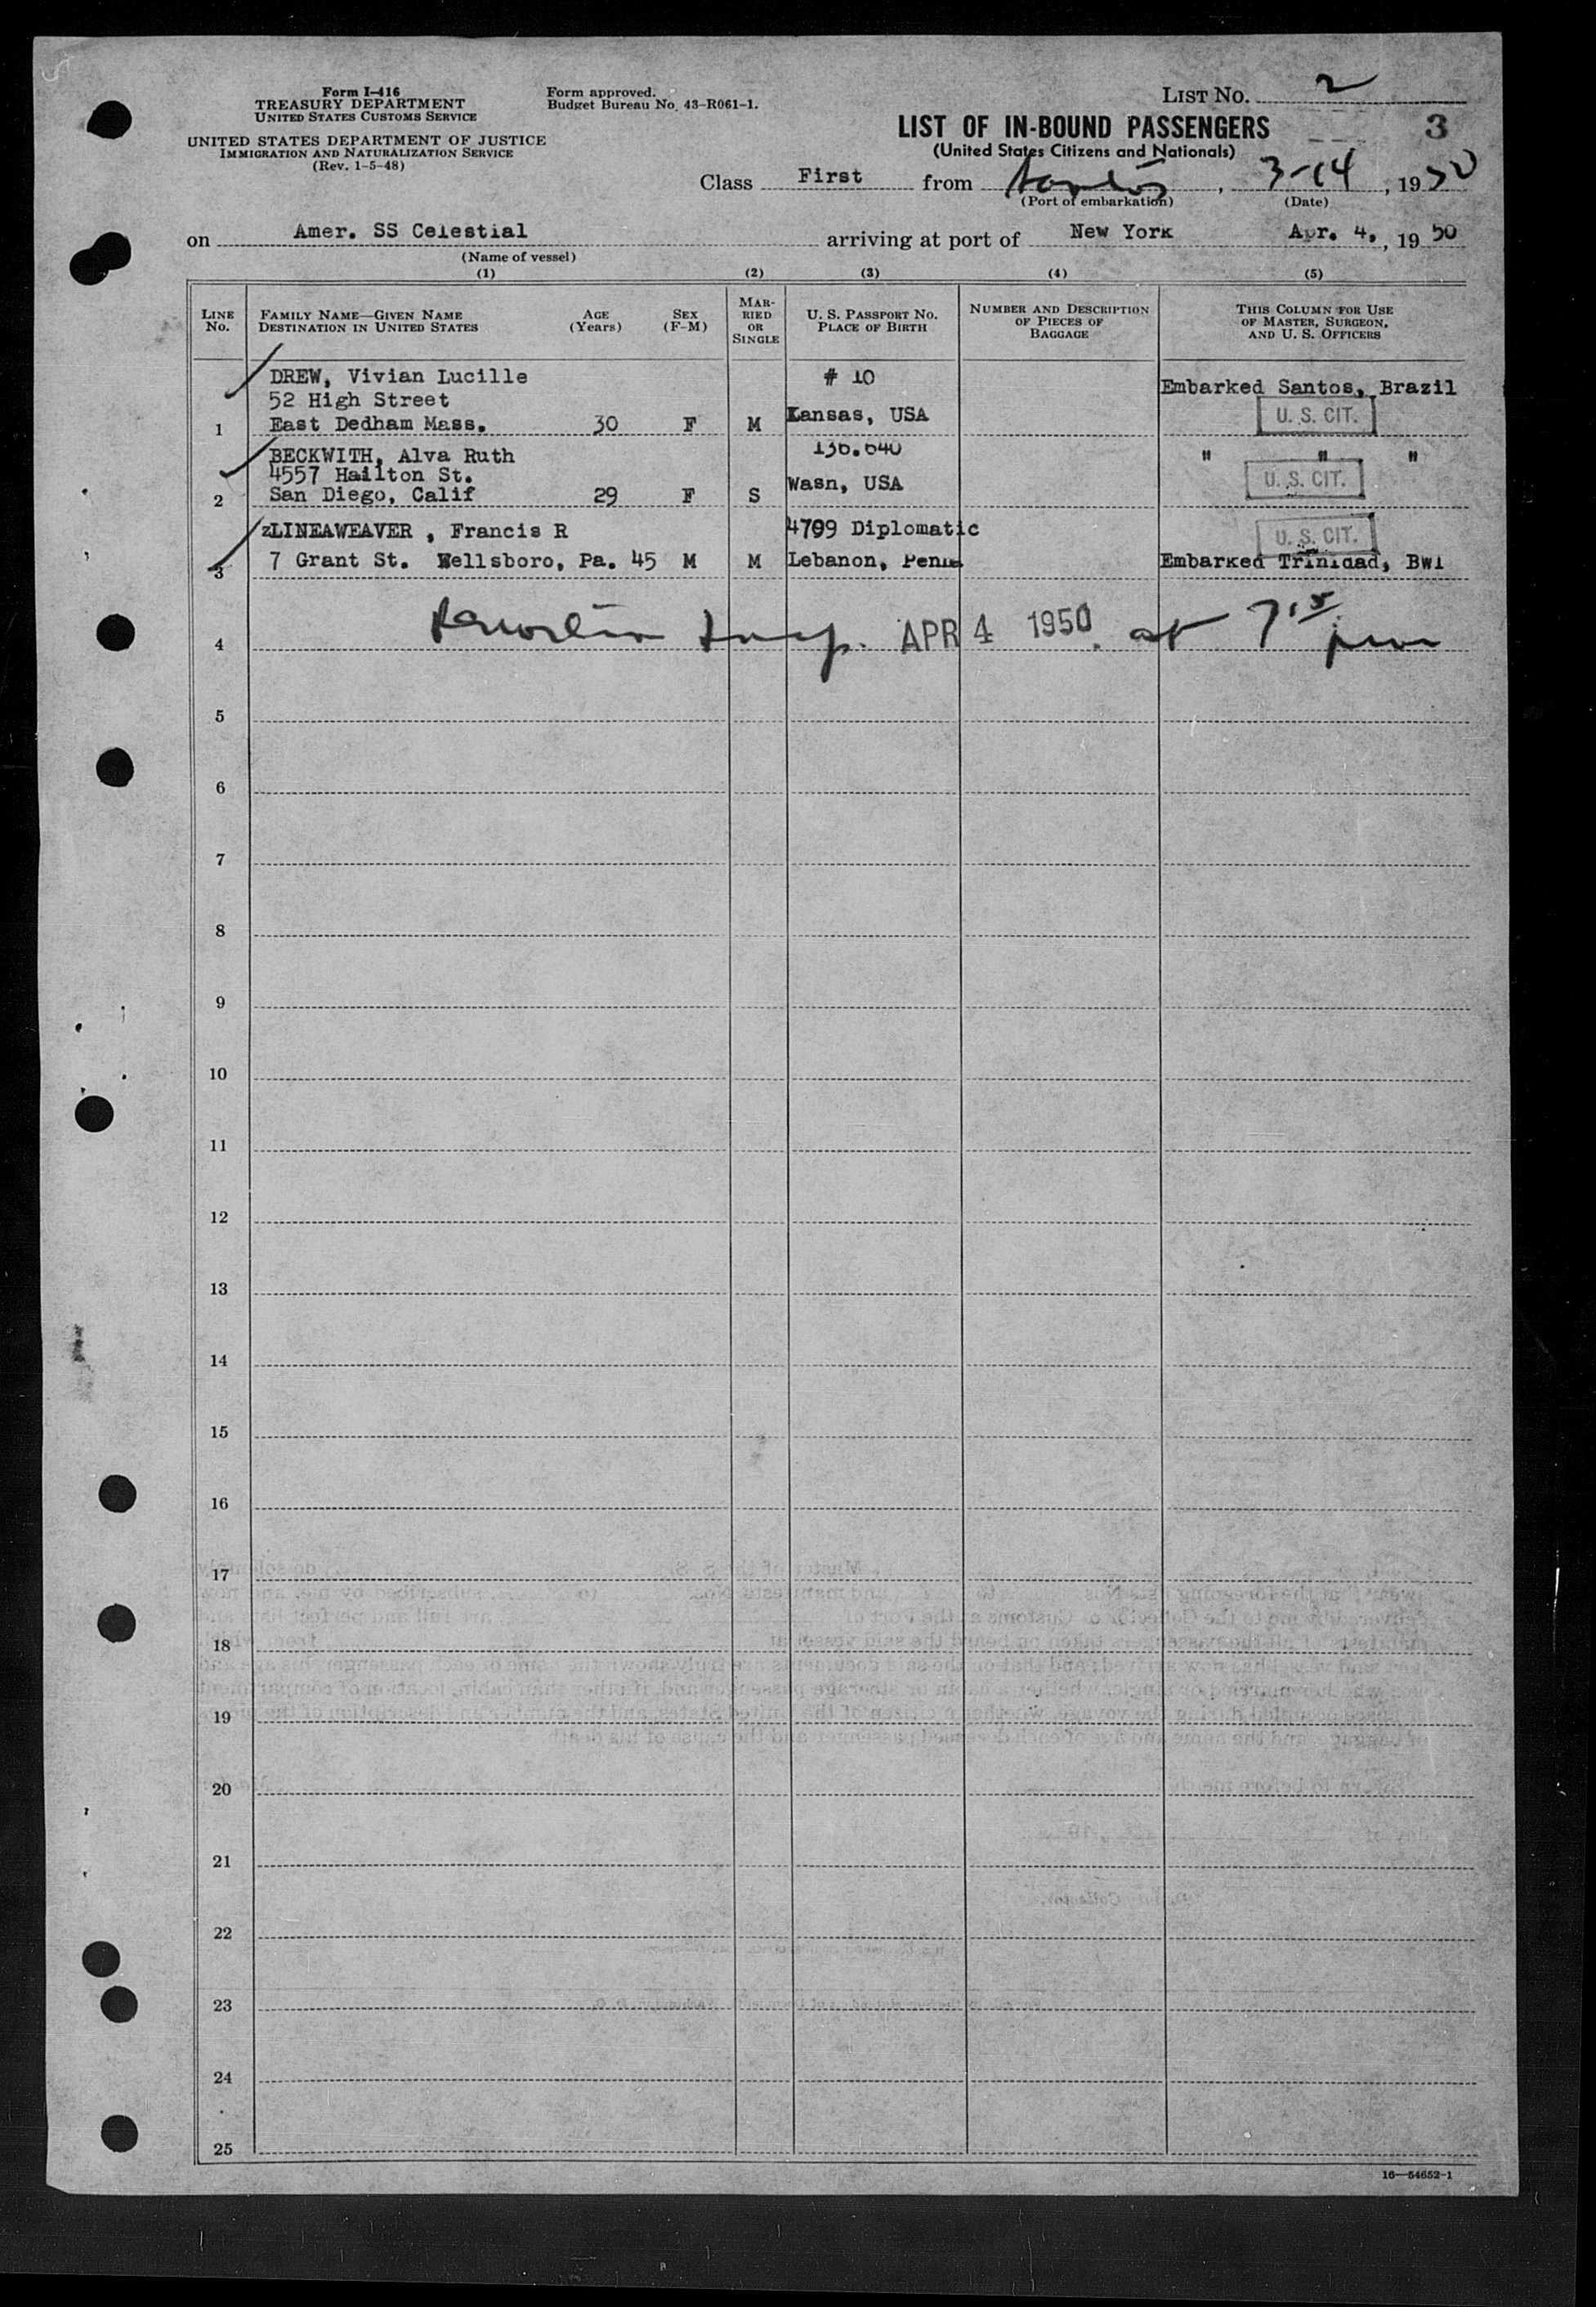 Form I-416
TREASURY DEPARTMENT
UNITED STATES CUSTOMS SERVICE
UNITED STATES DEPARTMENT OF JUSTICE
IMMIGRATION AND NATURALIZATION SERVICE
(Rev. 1-5-48)
Form approved.
Budget Bureau No. 43-R061-1.
LIST NO. 2
LIST OF IN-BOUND PASSENGERS 3
(United States Citizens and Nationals)
Class First from Santos, 3-14, 1950
(Port of embarkation) (Date)
on Amer. SS Celestial arriving at port of New York Apr. 4, 19 50
(Name of vessel)
(1) (2) (3) (4) (5)
LINE No.
FAMILY NAME—GIVEN NAME
DESTINATION IN UNITED STATES
AGE (Years)
SEX (F-M)
MAR-RIED OR SINGLE
U. S. PASSPORT NO.
PLACE OF BIRTH
NUMBER AND DESCRIPTION OF PIECES OF BAGGAGE
THIS COLUMN FOR USE OF MASTER, SURGEON, AND U. S. OFFICERS
DREW, Vivian Lucille # 10
52 High Street Embarked Santos, Brazil
1 East Dedham Mass. 30 F M Kansas, USA U. S. CIT.
BECKWITH, Alva Ruth 136.640 " " "
4557 Hailton St. Wasn, USA U. S. CIT.
2 San Diego, Calif 29 F S
zLINEAWEAVER , Francis R 4709 Diplomatic U. S. CIT.
3 7 Grant St. Wellsboro, Pa. 45 M M Lebanon, Penna Embarked Trinidad, BWI
4 Insp. APR 4 1950. at 7:15 pm
5
6
7
8
9
10
11
12
13
14
15
16
17
18
19
20
21
22
23
24
25
16—54652-1